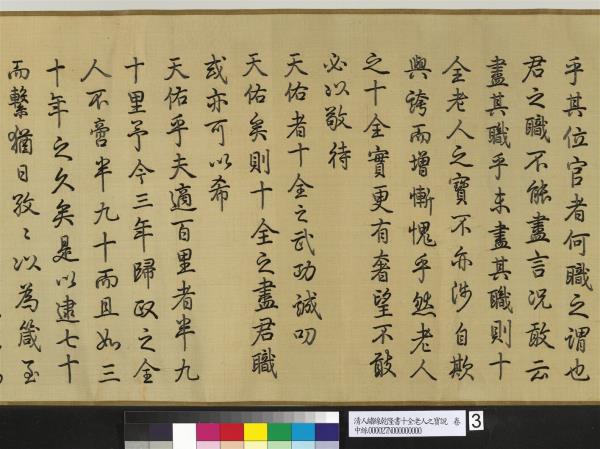 乎其位官者何職之謂也
君之職不能盡言況敢云
盡其職乎未盡其職則十
全老人之寶不亦涉自欺
與誇而增慚愧乎然老人
之十全實更有奢望不敢
必以敬待
天佑者十全之武功誠叨
天佑矣則十全之盡君職
或亦可以希
天佑乎夫適百里者半九
十里予今三年歸政之全
人不啻半九十而且如三
十年之久矣是以逮七十
而繫猶日孜〻以為箴至
清人繡線乾隆書十全老人之寶說 卷
中絲000027N000000000
3